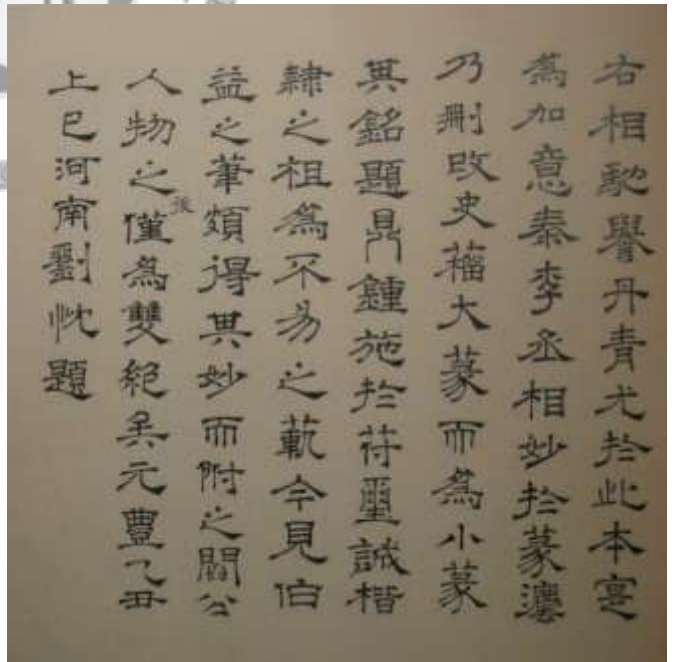 右相馳譽丹青尤於此本寔
為加意秦李丞相妙於篆灋
乃刪改史籀大篆而為小篆
其銘題鼎鍾施於符璽誠楷
隸之祖為不易之範今見伯
益之筆頗得其妙而附之閻公
人物之後僅為雙絕矣元豐乙丑
上巳河南劉忱題